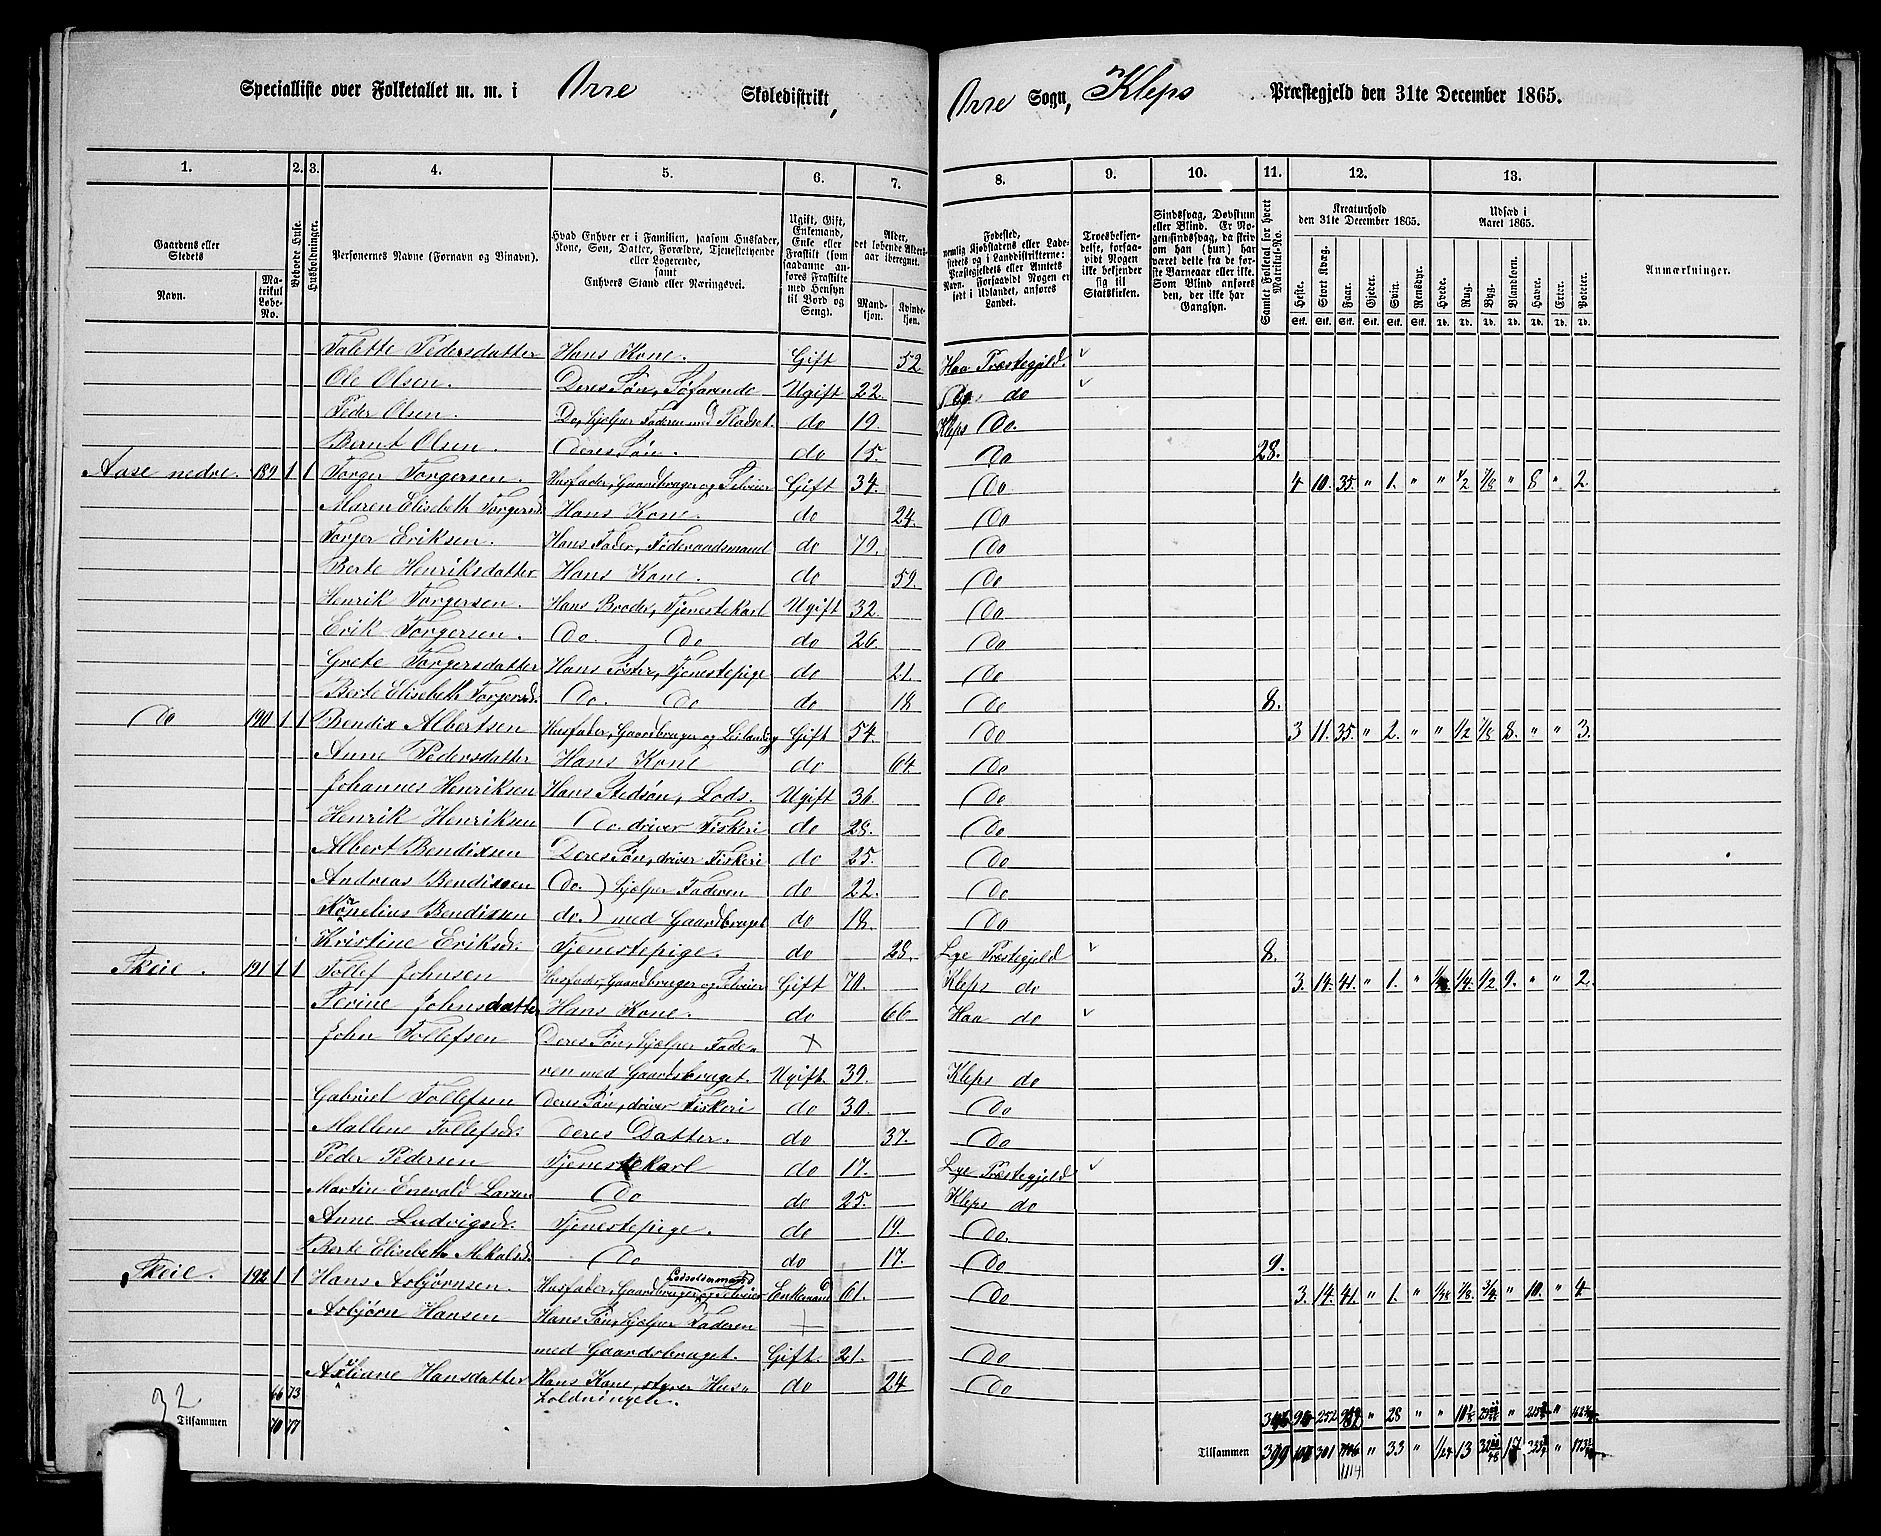 Specialliste over Folketallet m. m. i Orre Skoledistrikt, Orre Sogn, Kleps Præstegjeld den 31te December 1865.
1. 2. 3. 4. 5. 6. 7. 8. 9. 10. 11. 12. 13.
Gaardens eller Stedets Navn. Matrikul Løbe-No. Beboede Huse. Husholdninger. Personernes Navne (Fornavn og Tilnavn). Hvad Enhver er i Familien, saasom Husfader, Kone, Søn, Datter, Forældre, Tjenestetyende eller Logerende, samt Enhvers Stand eller Næringsvei. Ugift, Gift, Enkemand, Enke eller Fraskilt (som saadanne anføres Fraskilte med Hensyn til Bord og Seng). Alder, det løbende Alders-aar iberegnet. Mandkjøn. Kvindekjøn.
Fødested, Troesbekjendelse, forsaavidt Nogen ikke bekjender sig til Statskirken. Samlet Folketal for hvert Matrikul-No. Kreaturhold den 31te December 1865. Heste. Stort Kvæg. Faar. Gjeder. Svin. Rensdyr. Udsæd i Aaret 1865. Hvede. Rug. Byg. Blandkorn. Havre. Erter. Poteter. Anmærkninger.
Talette Pedersdatter Hans Kone. Gift 52 Haa Præstegjeld. v
Ole Olsen. Deres Søn, Søfarende Ugift 22. do v
Peder Olsen. Do, hjælper Faderen med Pladset. do 19 Kleps Do.
Bernt Olsen. Deres Søn. do 15 Do 28.
Aase nedre. 189 1 1 Torger Torgersen. Husfader, Gaardbruger og Selveier Gift 34. Do 4 10. 35. " 1. " " 1/2 7/8 " 8 " 2.
Maren Elisabeth Torgersd. Hans Kone. do 24. Do
Torger Eriksen. Hans Fader, Føderaadsmand do 79. Do
Berte Henriksdatter Hans Kone. do 59. Do
Henrik Torgersen. Hans Broder, Tjenestekarl Ugift 32. Do
Erik Torgersen. Do. Do do 26. Do
Grete Torgersdatter Hans Søster, Tjenestepige do 21. Do
Berte Elisabeth Torgersd. Do. Do do 18 Do 8.
Do 190 1 1 Bendix Albertsen Husfader, Gaardbruger og Leilænding Gift 54. Do 3 11. 35. " 2. " " 1/2 7/8 8. " " 3.
Anne Pedersdatter Hans Kone do 64. Do
Johannes Henriksen Hans Stedsøn, Lods. Ugift 36. Do
Henrik Henriksen Do. driver Fiskeri do 28. Do
Albert Bendixsen Deres Søn, driver Fiskeri do 25. Do
Andreas Bendixsen Do. ) hjælper Faderen do 22. Do
Kornelius Bendixsen do. ) med Gaardbruget do 18. Do
Kristine Eriksd. Tjenestepige. do 28. Lye Præstegjeld v 8.
Skeie. 191 1 1 Tollef Johnsen Husfader, Gaardbruger og Selveier Gift 70. Kleps do 3. 14. 41. " 1. " 1/4 1/2 9. " " 2.
Serine Johnsdatter Hans Kone. do 66 Haa do v
John Tollefsen Deres Søn, hjælper Fade- +
ren med Gaardsbruget. Ugift. 39. Kleps do
Gabriel Tollefsen Deres Søn, driver Fiskeri do 30. Do
Mallene Tollefsd. Deres Datter. do 37. Do
Peder Pedersen Tjenestekarl do 17. Lye Præstegjeld v
Martin Enevald Larsen Do do 25. Kleps do
Anne Ludvigsd. Tjenestepige. do 19. Do.
Berte Elisabeth Mikalsd. Do do 17. Do 9.
Skeie. 192 1 1 Hans Asbjørnsen. Husfader, Gaardbruger og Selveier Lodsoldermand Enkemand 61. Do 3. 14. 41. " 1. " 1/8. 3/4 " 10. " 4
Asbjørn Hansen Hans Søn, hjælper Faderen +
med Gaardsbruget. Gift. 21. Do
Hansdatter Hans Kone, styrer Hus- do 24 Do
holdningen.
32 66 73 252 " 28 "
Tilsammen 70 77 Tilsammen 399 301 1114 " 33 " 1/24 13 17 "